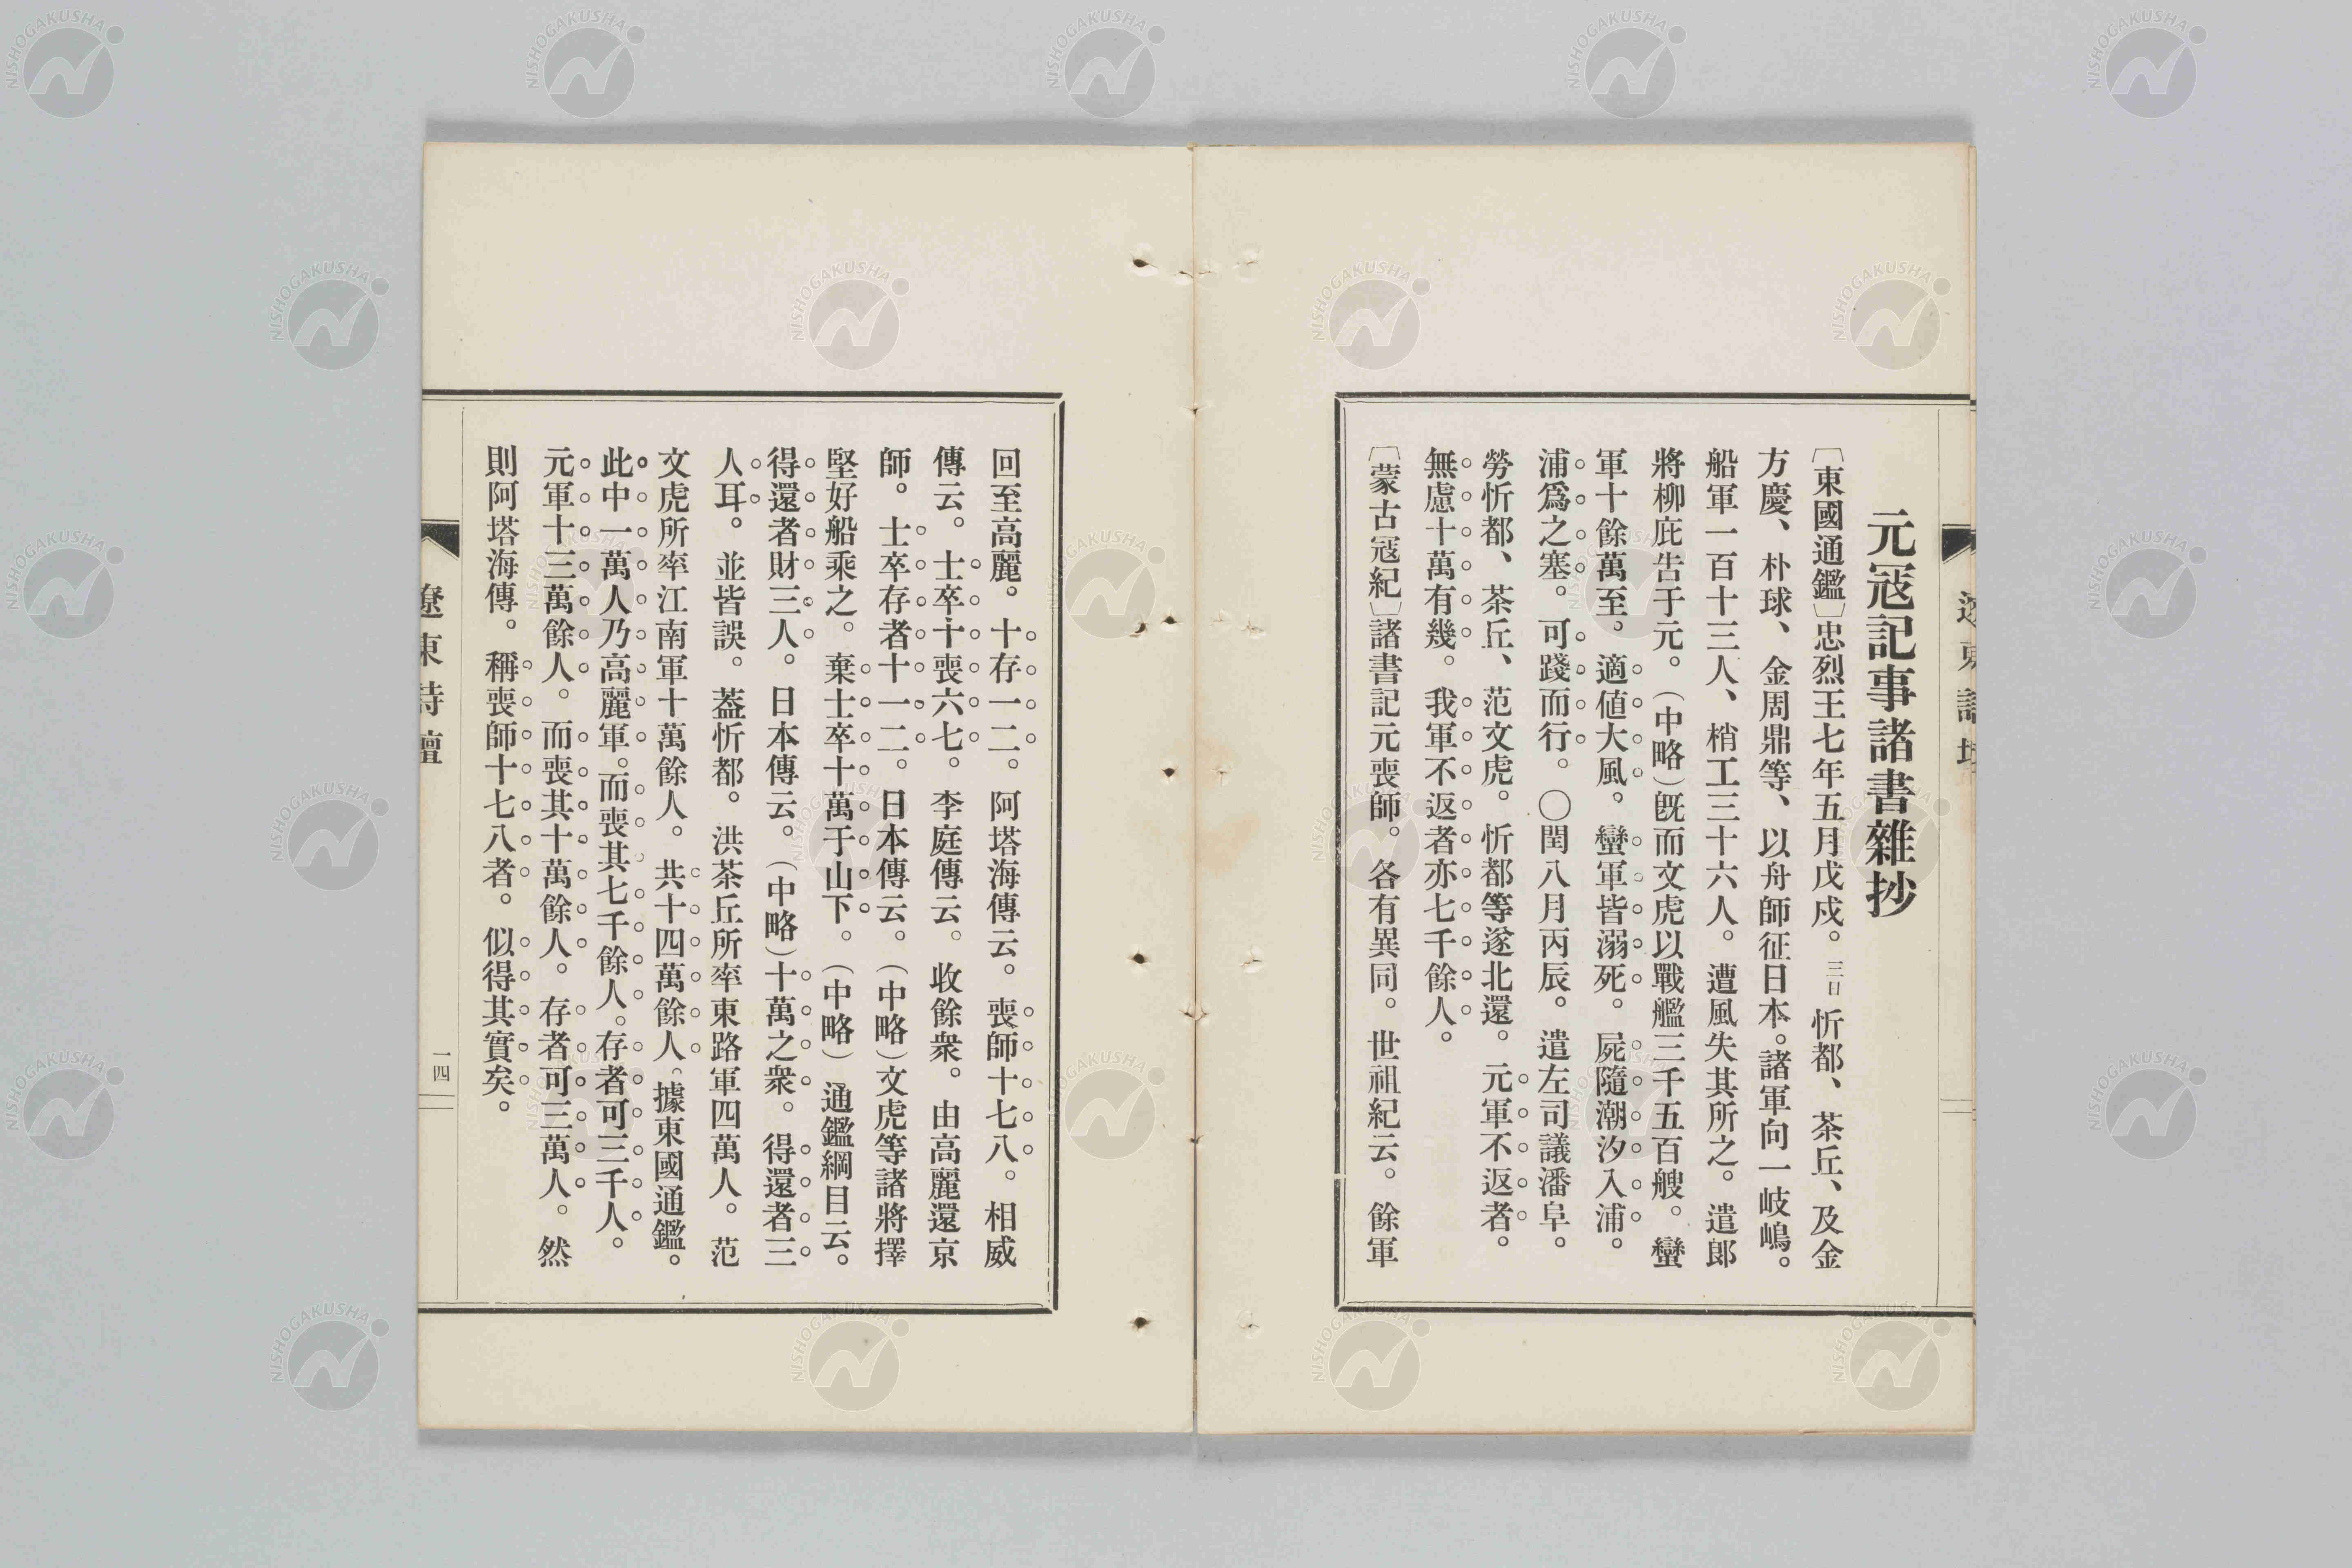 元冦記事諸書雜抄
〔東國通鑑〕忠烈王七年五月戊戍。三日忻都、茶丘、及金
方慶、朴球、金周鼎等、以舟師征日本。諸軍向一岐嶋。
船軍一百十三人、梢工三十六人。遭風失其所之。遣郎
將柳庇告于元。(中略)旣而文虎以戰艦三千五百艘。蠻
軍十餘萬至。適値大風。蠻軍皆溺死。屍隨潮汐入浦。
浦爲之塞。可踐而行。〇閏八月丙辰。遣左司議潘阜。
勞忻都、茶丘、范文虎。忻都等遂北還。元軍不返者。
無慮十萬有幾。我軍不返者亦七千餘人。
〔蒙古冦紀〕諸書記元喪師。各有異同。世祖紀云。餘軍
回至高麗。十存一二。阿塔海傳云。喪師十七八。相威
傳云。士卒十喪六七。李庭傳云。收餘衆。由高麗還京
師。士卒存者十一二。日本傳云。(中略)文虎等諸將擇
堅好船乘之。棄士卒十萬于山下。(中略)通鑑綱目云。
得還者財三人。日本傳云。(中略)十萬之衆。得還者三
人耳。並皆誤。葢忻都。洪茶丘所率東路軍四萬人。范
文虎所率江南軍十萬餘人。共十四萬餘人。據東國通鑑。
此中一萬人乃高麗軍。而喪其七千餘人。存者可三千人。
元軍十三萬餘人。而喪其十萬餘人。存者可三萬人。然
則阿塔海傳。稱喪師十七八者。似得其實矣。
遼東詩壇
一四
NISHOGAKUSHA